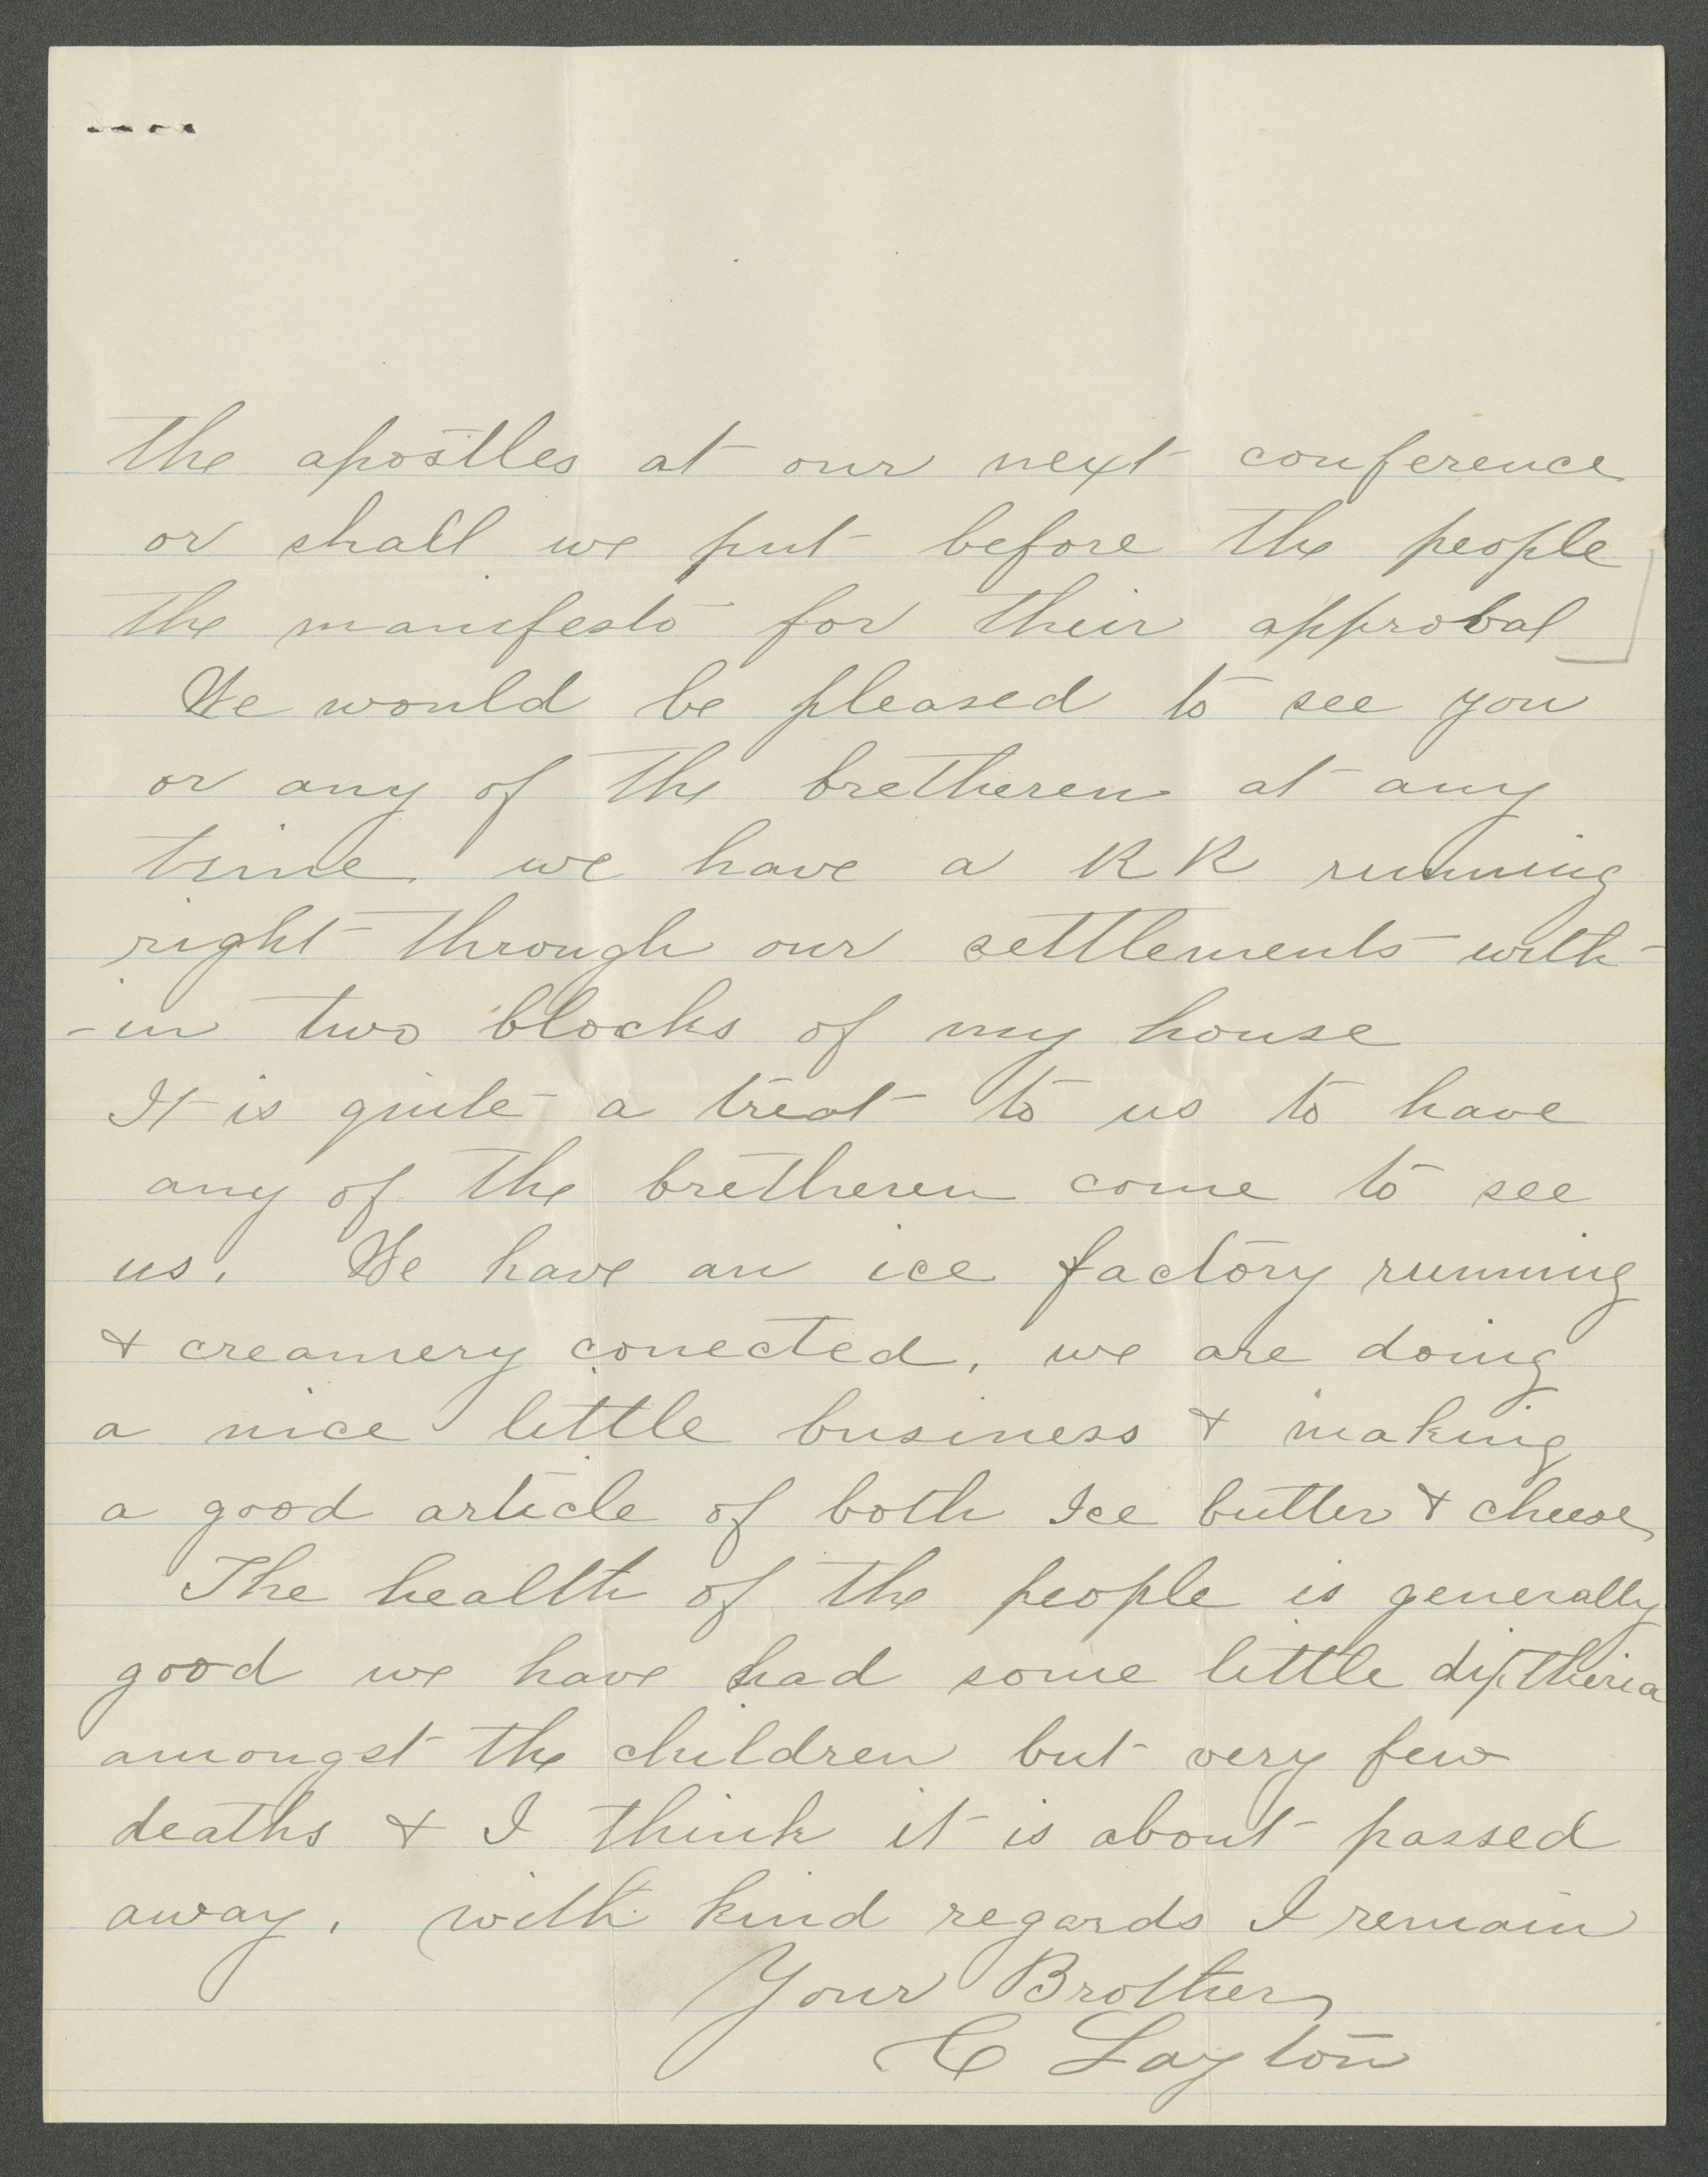 the apostles at our next conference
or shall we put before the people
the manifesto for their approbal
We would be pleased to see you
or any of the bretheren at any
time we have a RR running
right through our settlements with-
-in two blocks of my house
It is quite a treat to us to have
any of the bretheren come to see
us. We have an ice factory running
& creamery conected, we are doing
a nice little business & making
a good article of both Ice butter & cheese
The health of the people is generally
good we have had some little diptheria
amongst the children but very few
deaths & I think it is about passed
away. with kind regards I remain
Your Brother
C Layton